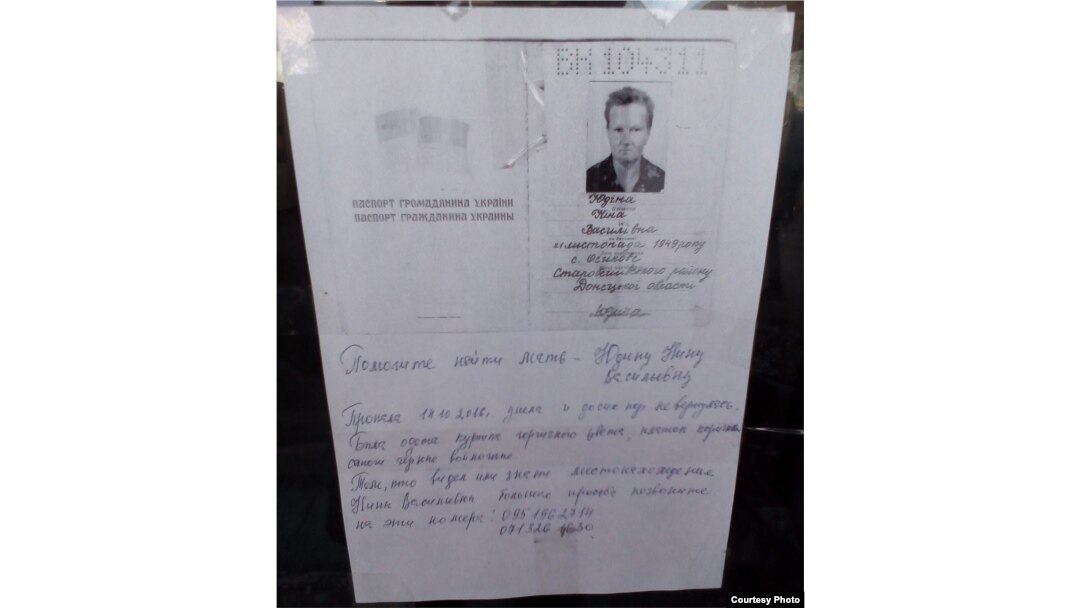 ВК104311
ПАСПОРТ ГРОМАДЯНИНА УКРАЇНИ
ПАСПОРТ ГРАЖДАНИНА УКРАИНЫ
Юдіна
Ніна
Василівна
листопада 1949 року
с. Осикове
Старобешівського району
Донецької області
Помогите найти мать – Юдину Нину
Васильевну
Пропала 10.2016г ушла и до сих пор не вернулась.
Была одета куртка горчичного цвета, платок
сапоги чёрные войлочные
Тот, кто видел или знает местонахождение
Нины Васильевны большая просьба позвоните
на эти номера: 0951962714
071326
Courtesy Photo